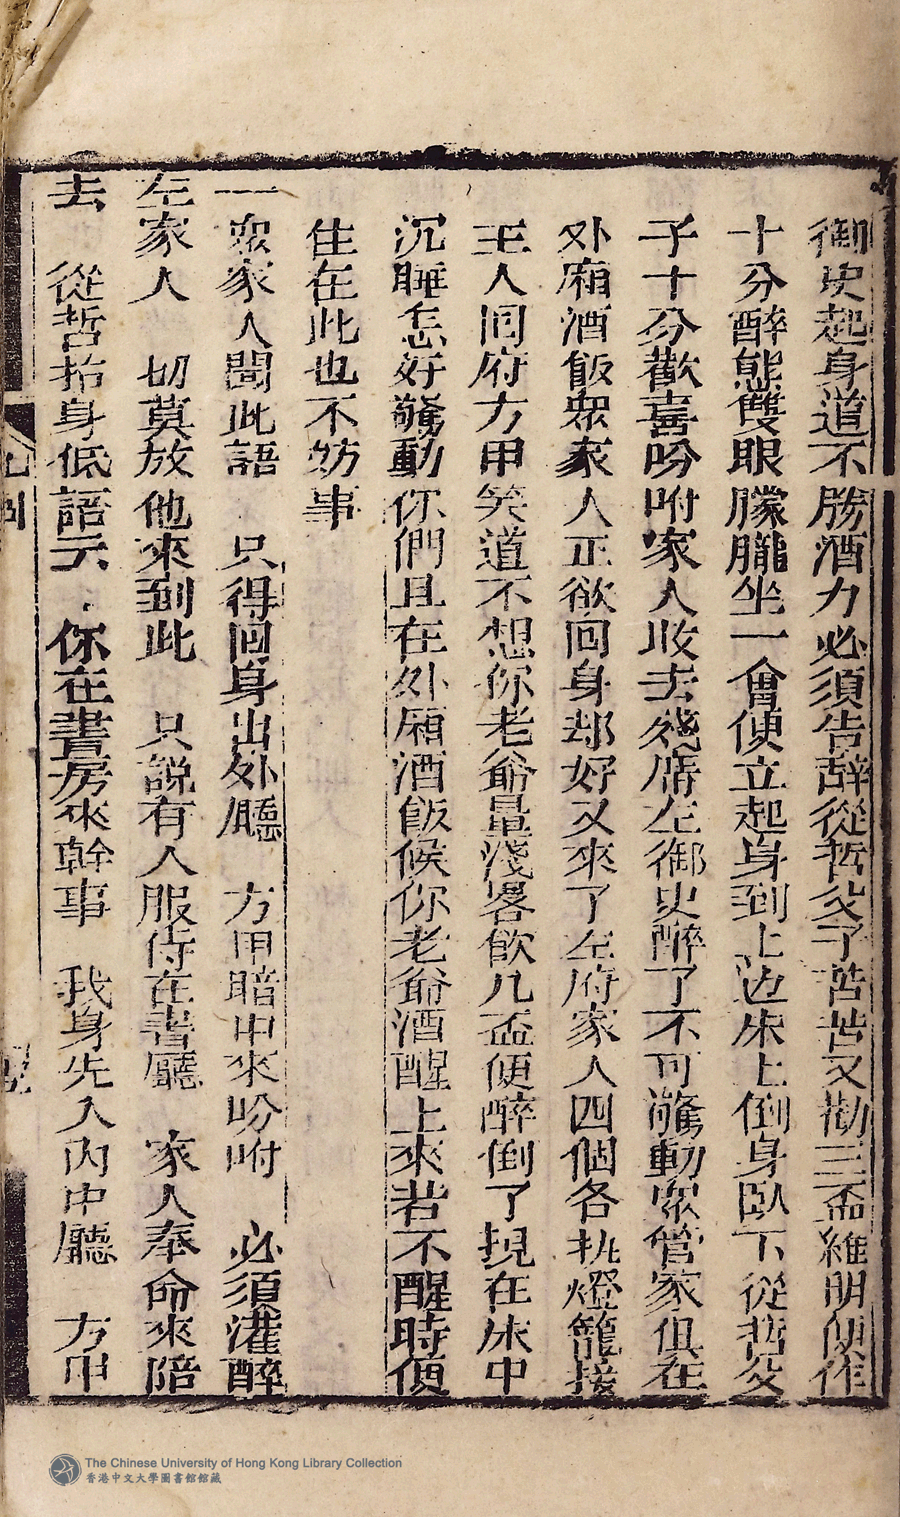 御史起身道不勝酒力必須告辞從哲父子苦苦又勸三盃維明便作
十分醉態雙眼朦朧坐一會便立起身到上边床上倒身臥下從哲父
子十分歡喜吩咐家人收去殘席左御史醉了不可驚動眾管家俱在
外廂酒飯眾家人正欲回身却好又來了左府家人四個各执燈籠接
主人囘府方甲笑道不想你老爺量淺畧飲几盃便醉倒了現在床中
沉睡怎好驚動你們且在外厢酒飯候你老爺酒醒上來若不醒時便
住在此也不妨事
一眾家人聞此語 只得囘身出外廳 方甲暗中來吩咐 必須灌醉
左家人 切莫放他來到此 只說有人服侍在書廳 家人奉命來陪
去 從哲抬身低語云 你在書房來幹事 我身先入内中廳 方甲
The Chinese University of Hong Kong Library Collection
香港中文大學圖書館館藏